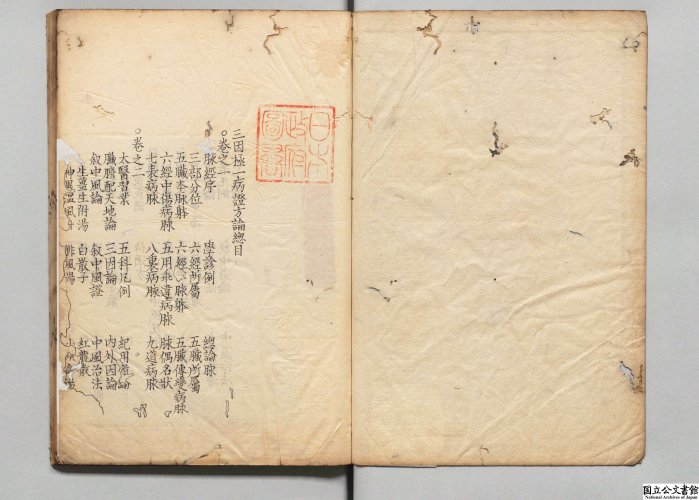 三因極一病證方論總目
○卷之一
脉經序 學診例 總論脉
三部分位 六經所屬 五臟所屬
五臟本脉體 六經本脉體 五臟傳變病脉
六經中傷病脉 五用乖違病脉 脉偶名狀
七表病脉 八裏病脉 九道病脉
○卷之二
太醫習業 五科凡例 紀用備論
臟腑配天地論 三因論 内外因論
叙中風論 叙中風證 中風治法
生薑生附湯 白散子 紅龍散
神異溫風丹 排風湯 小續命湯
日本
政府
圖書
国立公文書館
National Archives of Japan